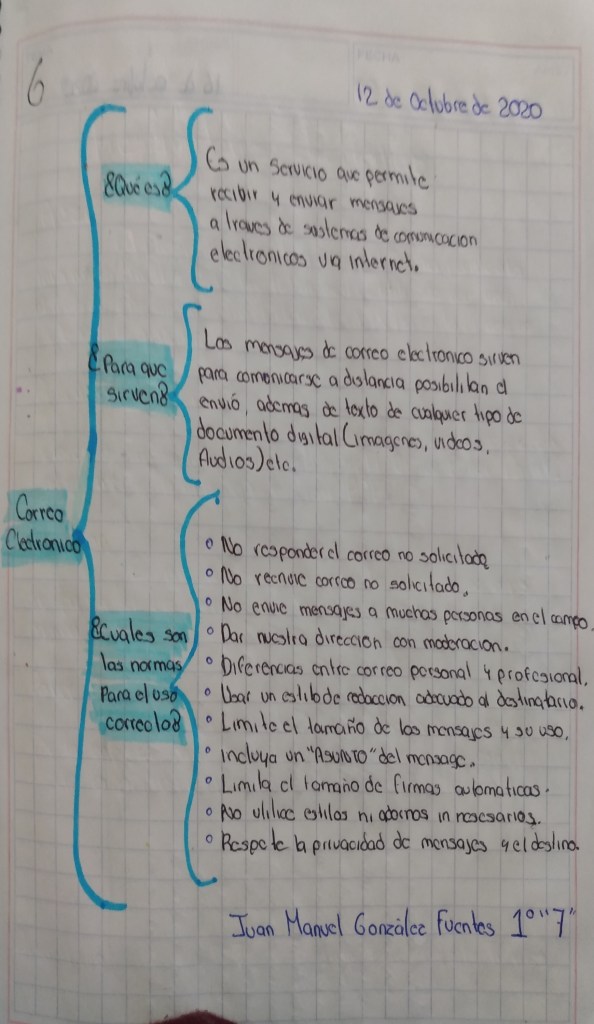 6
12 de Octubre de 2020
¿Qué es?
Es un servicio que permite
recibir y enviar mensajes
a traves de sistemas de comunicacion
electronicos via internet.
¿Para que
sirven?
Los mensajes de correo electronico sirven
para comunicarse a distancia posibilitan el
envió, ademas de texto de cualquier tipo de
documento digital (imagenes, videos,
Audios) etc.
Correo
Electronico
¿Cuales son
las normas
Para el uso
correcto?
No responder el correo no solicitado
No reenvie correo no solicitado.
No envie mensajes a muchas personas en el campo.
Dar nuestra direccion con moderacion.
Diferencias entre correo personal y profesional.
Usar un estilo de redaccion adecuado al destinatario.
Limite el tamaño de los mensajes y su uso.
incluya un "ASUNTO" del mensage.
Limita el tamaño de firmas automaticas.
No utilice estilos ni adornos in nesesarios.
Respete la privacidad de mensajes y el destina.
Juan Manuel González Fuentes 1° "7"